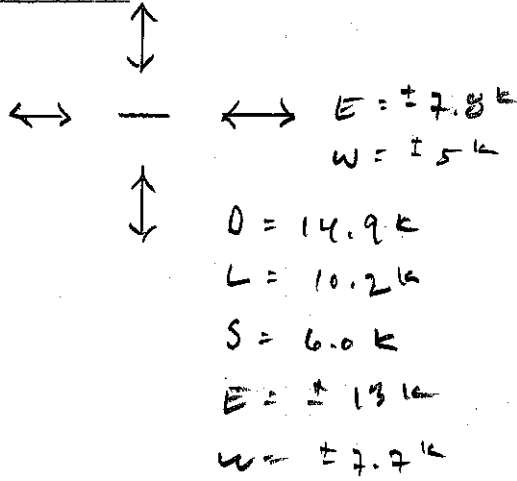 E = ± 7.8 k
W = ± 5 k
D = 14.9 k
L = 10.2 k
S = 6.0 k
E = ± 13 k
W = ± 7.7 k